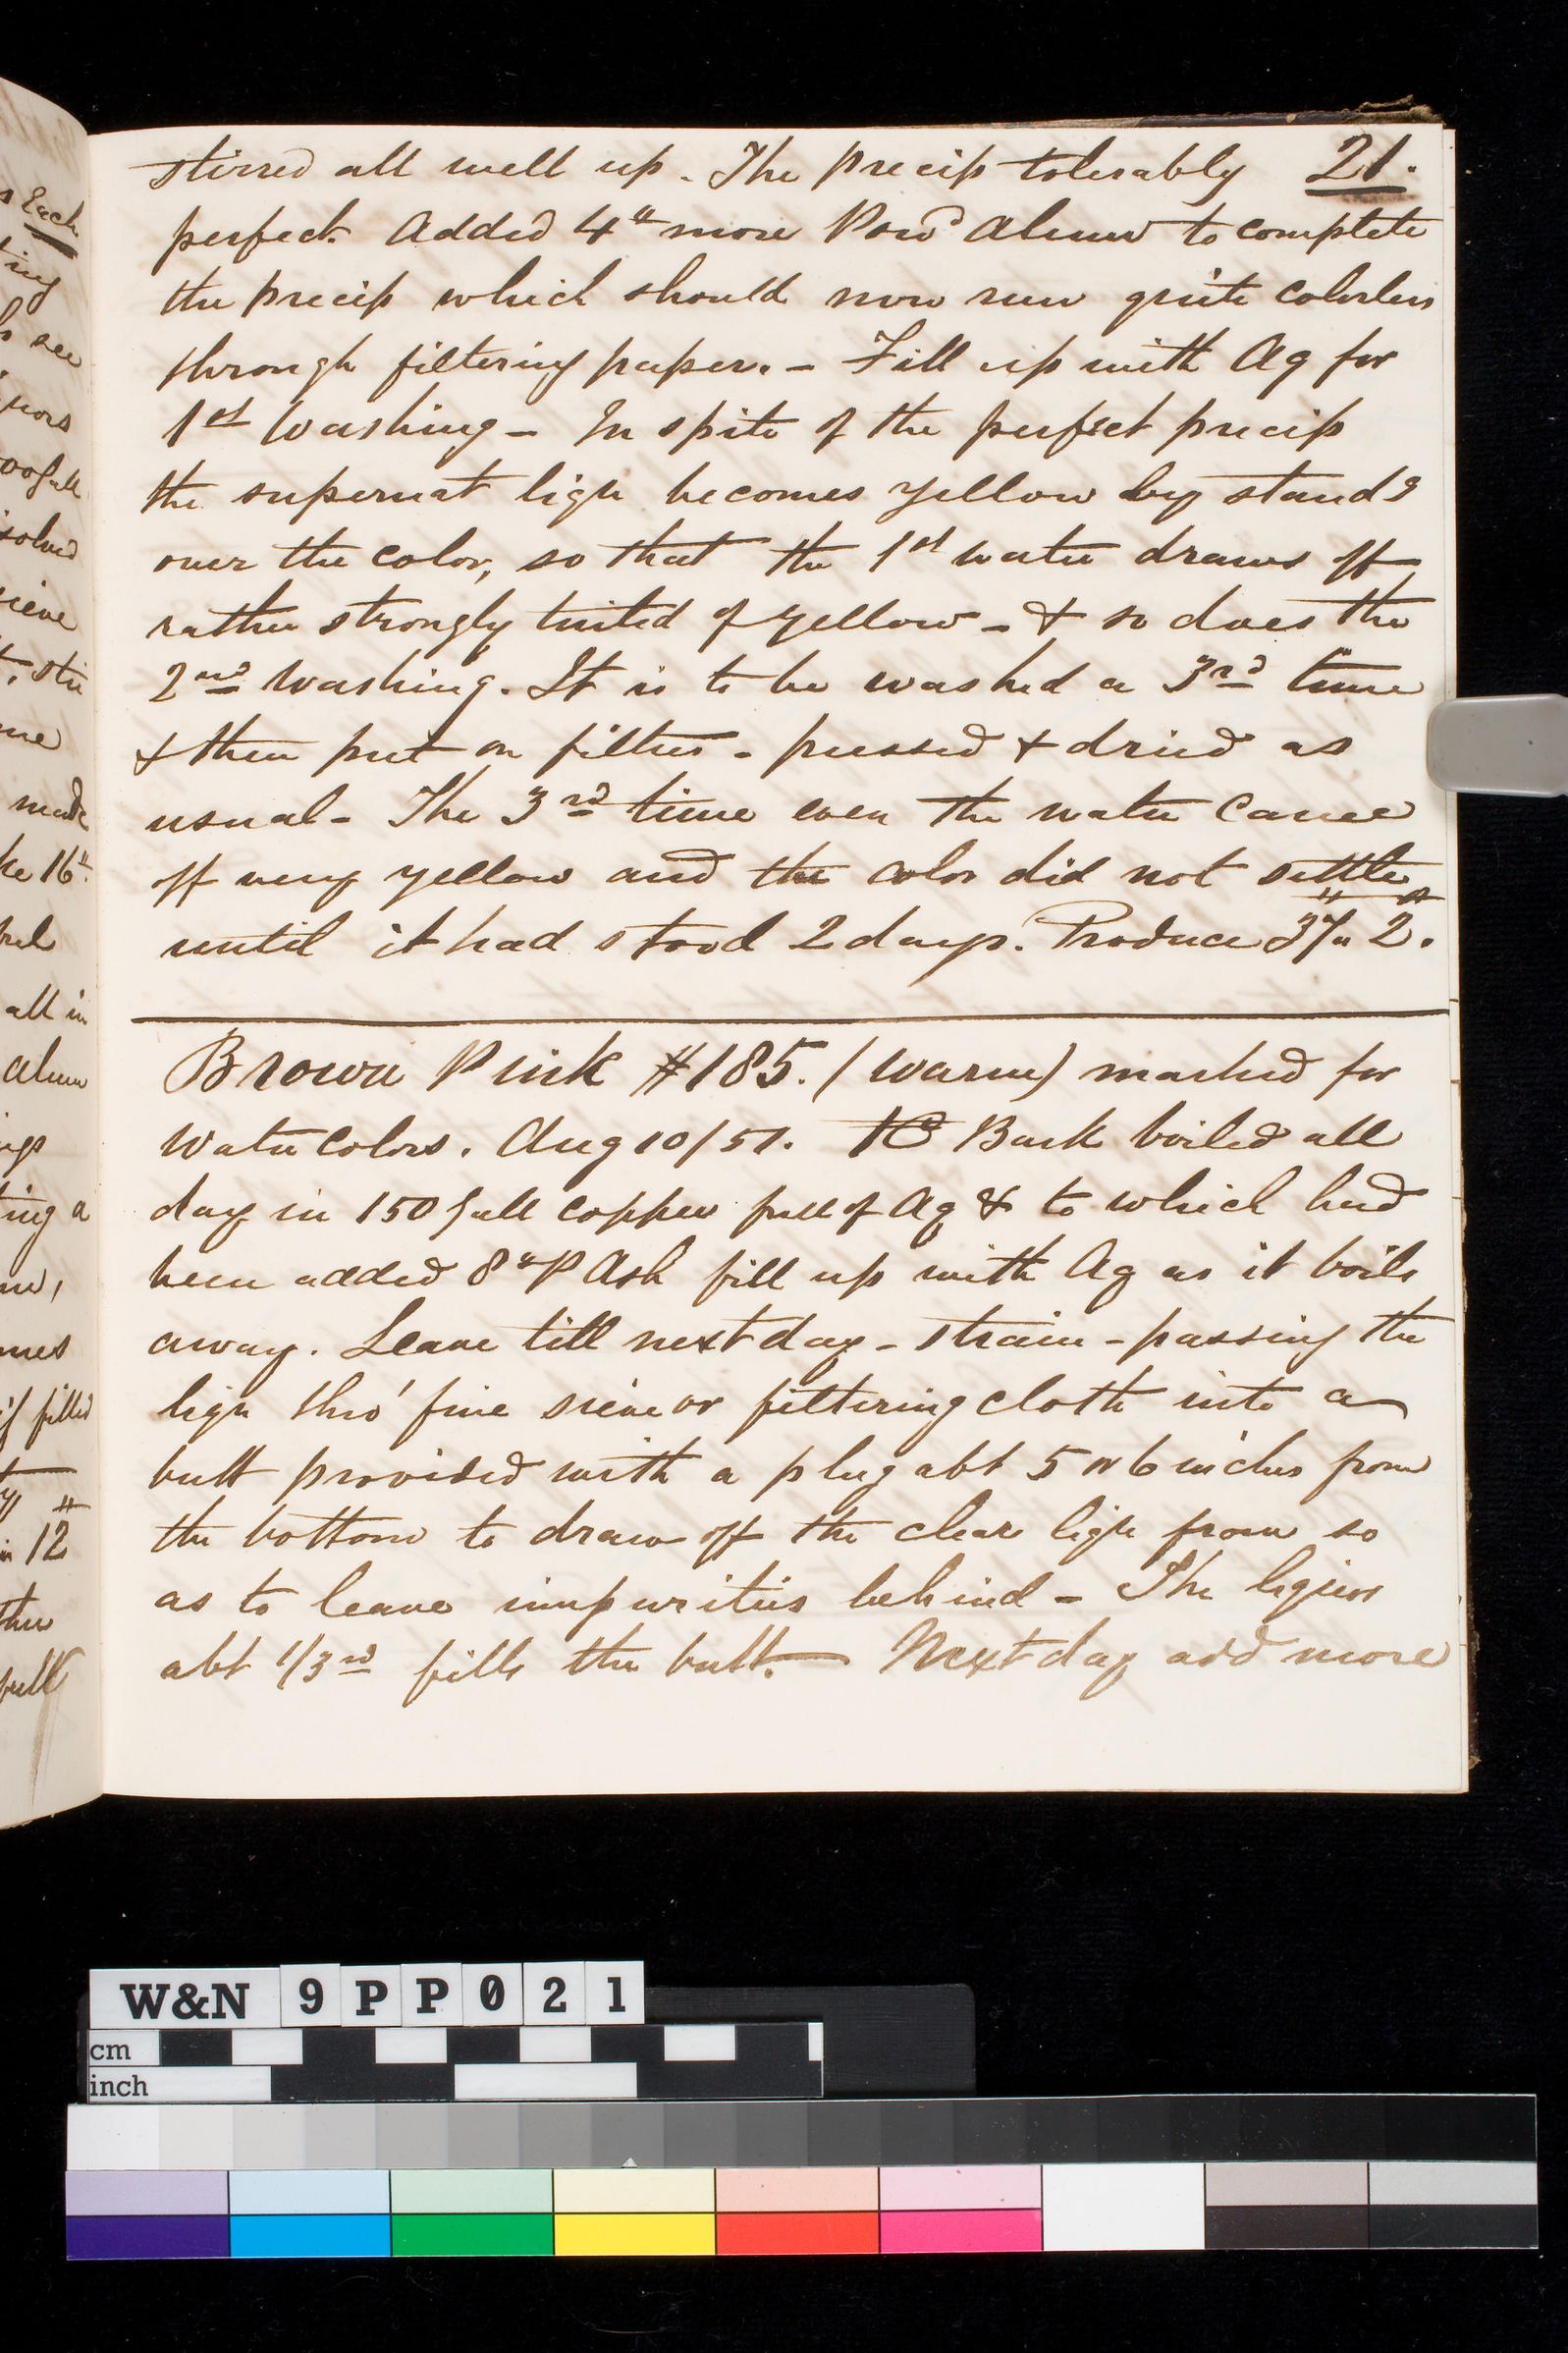 stirred all well up. The precip tolerably 21.
perfect. Added 4" more Powd Alum to complete
the precip which should now run quite colorless
through filtering paper. - Fill up with Aq for
1st Washing - In spite of the perfect precip
the supernat liqr becomes yellow by standg
over the color, so that the 1st water draws off
rather strongly tinted of yellow - & so does the
2nd Washing. It is to be washed a 3rd time
& then put on filter - pressed & dried as
usual - The 3rd time even the water came
off very yellow and the color did not settle
until it had stood 2 days. Produce 37" 2.
Brown Pink #185. (Warm) marked for
Water Colors. Aug 10/51. Bark boiled all
day in 150 gall copper full of Aq & to which had
been added 8" P Ash fill up with Aq as it boils
away. Leave till next day - strain - passing the
liqr thro' fine sieve or filtering cloth into a
butt provided with a plug abt 5 or 6 inches from
the bottom to draw off the clear liqr from so
as to leave impurities behind - The liquor
abt 1/3rd fills the butt. — Next day add more
Each
ting
see
sieve
made
16"
all in
alum
ting a
filled
12
full
W&N 9PP021
cm
inch